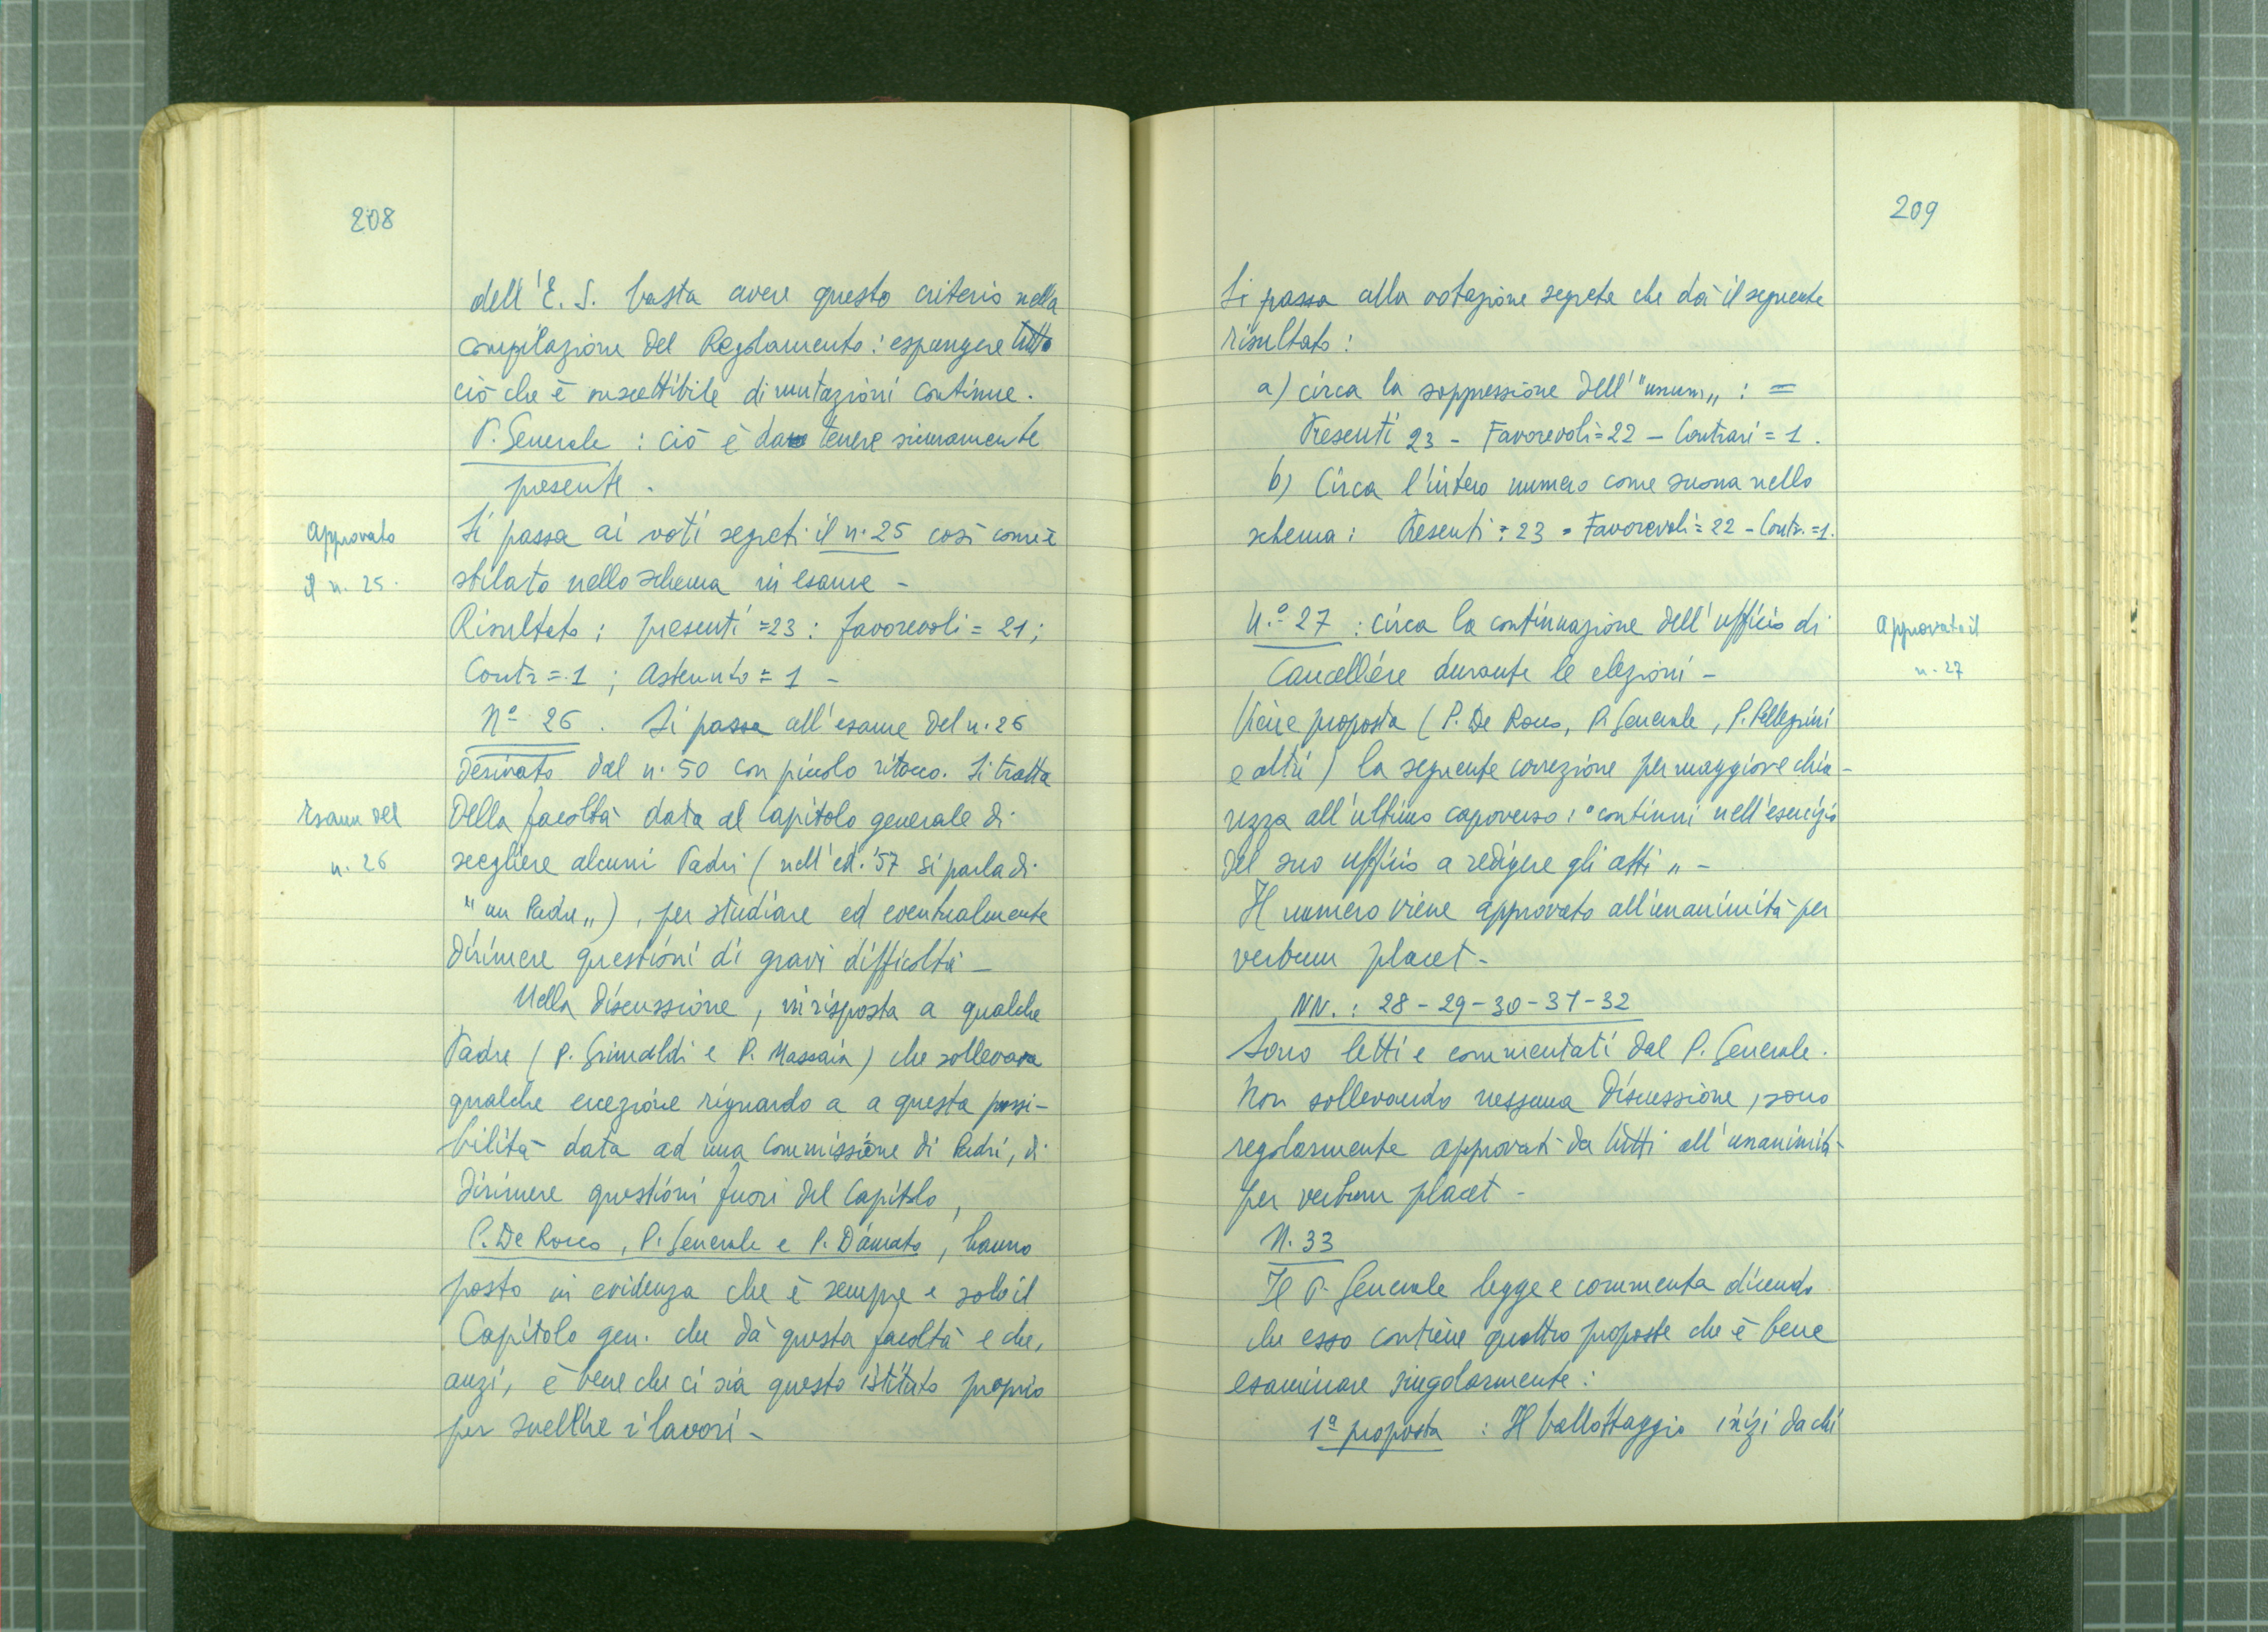 208
dell'E. S. basta avere questo criterio nella
compilazione del Regolamento: espungere tutto
ciò che è suscettibile di mutazioni continue.
P. Generale : ciò è da tenere sicuramente
presente.
Approvato
il n. 25.
Si passa ai voti segreti il n. 25 così com'è
stilato nello schema in esame -
Risultato: presenti = 23: favorevoli = 21;
Contr = 1 ; Astenuto = 1 -
Nº 26. Si passa all'esame del n. 26
derivato dal n. 50 con piccolo ritocco. Si tratta
Esame del
n. 26
della facoltà data al Capitolo generale di
scegliere alcuni Padri (nell'ed. '57 si parla di
"un Padre„), per studiare ed eventualmente
dirimere questioni di gravi difficoltà -
Nella discussione, in risposta a qualche
Padre (P. Grimaldi e P. Massaia) che sollevava
qualche eccezione riguardo a a questa possi-
bilità data ad una Commissione di Padri, di
dirimere questioni fuori del Capitolo,
P. De Rocco, P. Generale e P. D'Amato, hanno
posto in evidenza che è sempre e solo il
Capitolo gen. che dà questa facoltà e che,
anzi, è bene che ci sia questo istituto proprio
per sveltire i lavori -
209
Si passa alla votazione segreta che dà il seguente
risultato:
a) circa la soppressione dell' "unum„ : =
Presenti 23 - Favorevoli = 22 - Contrari = 1.
b) Circa l'intero numero come suona nello
schema: Presenti = 23 - Favorevoli = 22 - Contr. = 1.
N.º 27 : circa la continuazione dell'ufficio di
Cancelliere durante le elezioni -
Approvato il
n. 27
Viene proposta (P. De Rocco, P. Generale, P. Pellegrini
e altri) la seguente correzione per maggiore chia-
rezza all'ultimo capoverso: "continui nell'esercizio
del suo ufficio a redigere gli atti„ -
Il numero viene approvato all'unanimità per
verbum placet -
NN. : 28 - 29 - 30 - 31 - 32
Sono letti e commentati dal P. Generale.
Non sollevando nessuna discussione, sono
regolarmente approvati da tutti all'unanimità
per verbum placet -
N. 33
Il P. Generale legge e commenta dicendo
che esso contiene quattro proposte che è bene
esaminare singolarmente:
1ª proposta : Il ballottaggio inizi da chi